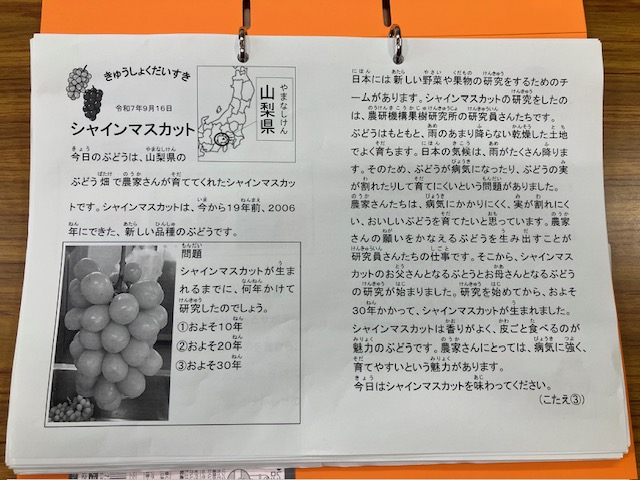 きゅうしょくだいすき
令和7年9月16日
シャインマスカット
やまなしけん
山梨県
今日のぶどうは、山梨県の
ぶどう畑で農家さんが育ててくれたシャインマスカッ
トです。シャインマスカットは、今から19年前、2006
年にできた、新しい品種のぶどうです。
問題
シャインマスカットが生ま
れるまでに、何年かけて
研究したのでしょう。
①およそ10年
②およそ20年
③およそ30年
日本には新しい野菜や果物の研究をするためのチ
ームがあります。シャインマスカットの研究をしたの
は、農研機構果樹研究所の研究員さんたちです。
ぶどうはもともと、雨のあまり降らない乾燥した土地
でよく育ちます。日本の気候は、雨がたくさん降りま
す。そのため、ぶどうが病気になったり、ぶどうの実
が割れたりして育てにくいという問題がありました。
農家さんたちは、病気にかかりにくく、実が割れにく
い、おいしいぶどうを育てたいと思っています。農家
さんの願いをかなえるぶどうを生み出すことが
研究員さんたちの仕事です。そこから、シャインマス
カットのお父さんとなるぶどうとお母さんとなるぶどう
の研究が始まりました。研究を始めてから、およそ
30年かかって、シャインマスカットが生まれました。
シャインマスカットは香りがよく、皮ごと食べるのが
魅力のぶどうです。農家さんにとっては、病気に強く、
育てやすいという魅力があります。
今日はシャインマスカットを味わってください。
（こたえ③）